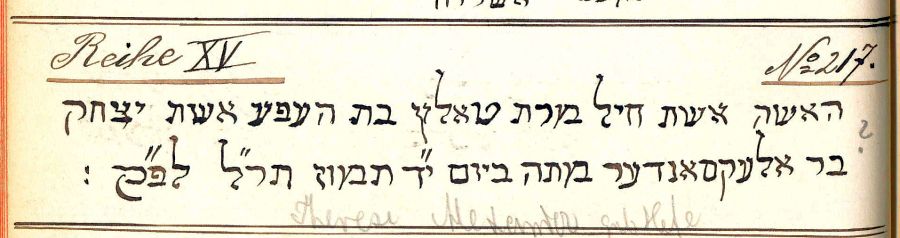 Reihe XV
No 217.
האשה אשת חיל מרת טאלץ בת העפע אשת יצחק
?
בר אלעקסאנדער מתה ביום י״ד תמוז תר״ל לפ״ק :
Therese Alexander geb Hefe